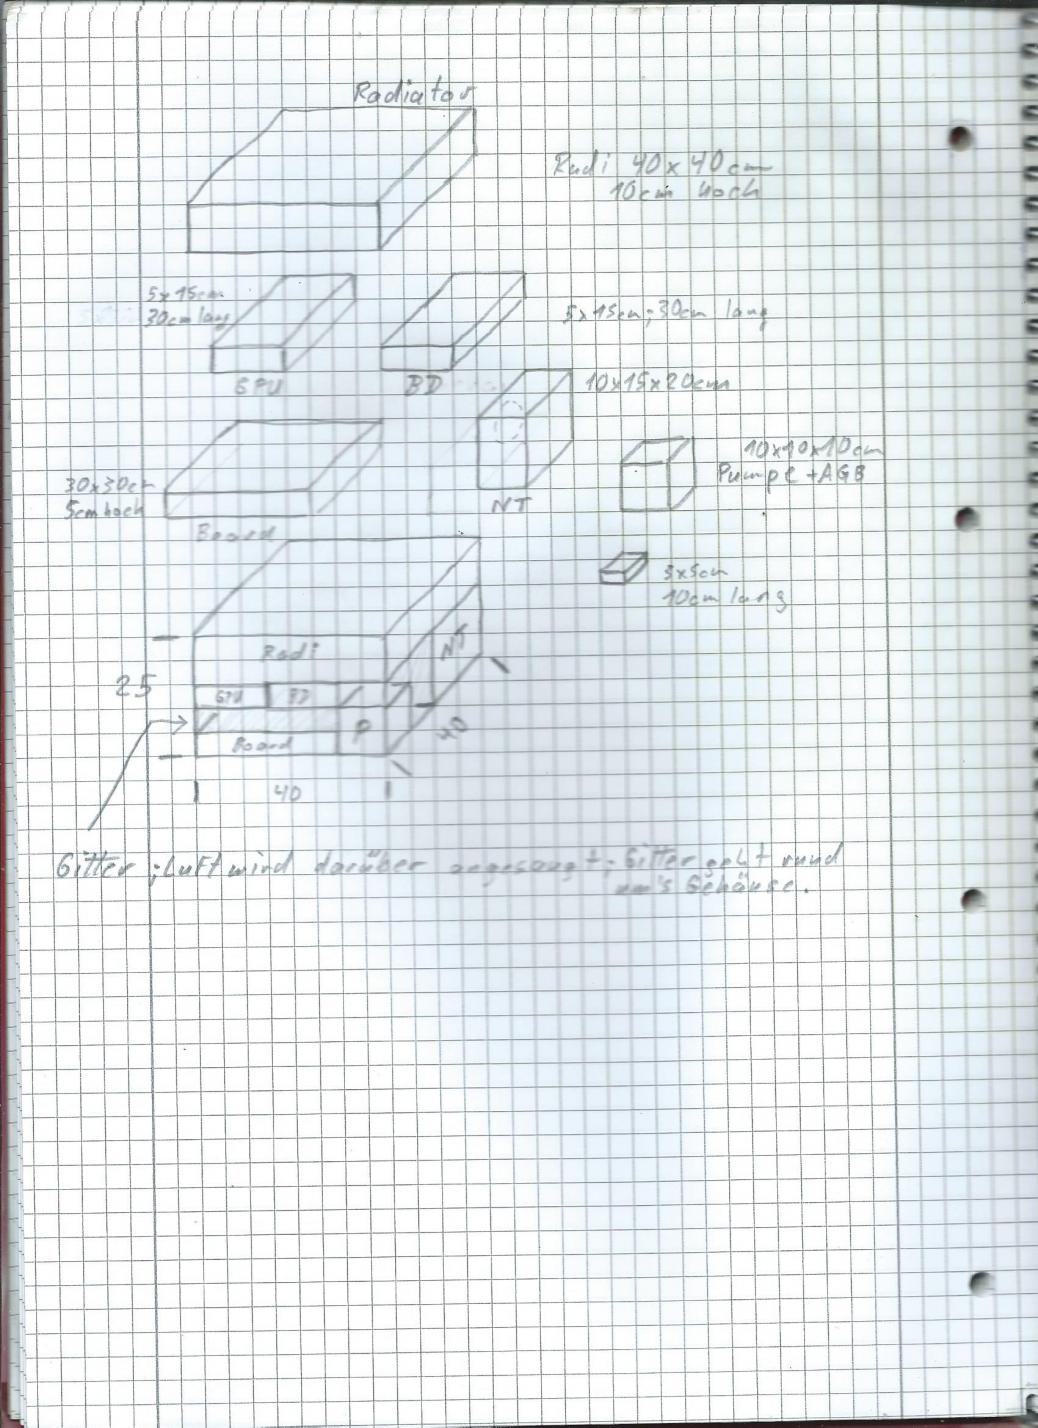 Radiator
Radi 40x40cm
10cm hoch
5x15cm
30cm lang
5x15cm; 30cm lang
GPU
BD
10x15x20cm
10x10x10cm
Pumpe + AGB
30x30cm
5cm hoch
NT
Board
5cm
10cm lang
Radi
NT
25
GPU
BD
P
40
Board
40
Gitter; Luft wird darüber angesaugt; Gitter geht rund
um's Gehäuse.